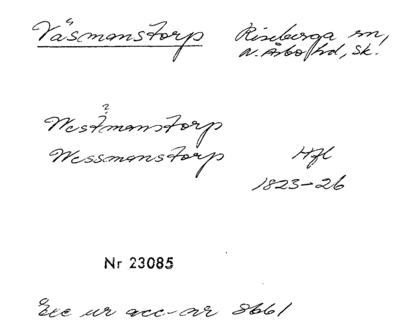 Väsmanstorp Riseberga sn,
N. Åsbo hd, Sk.
?
Westmanstorp
Wessmanstorp Hfl
1823-26
Nr 23085
Exc ur acc-nr 8661